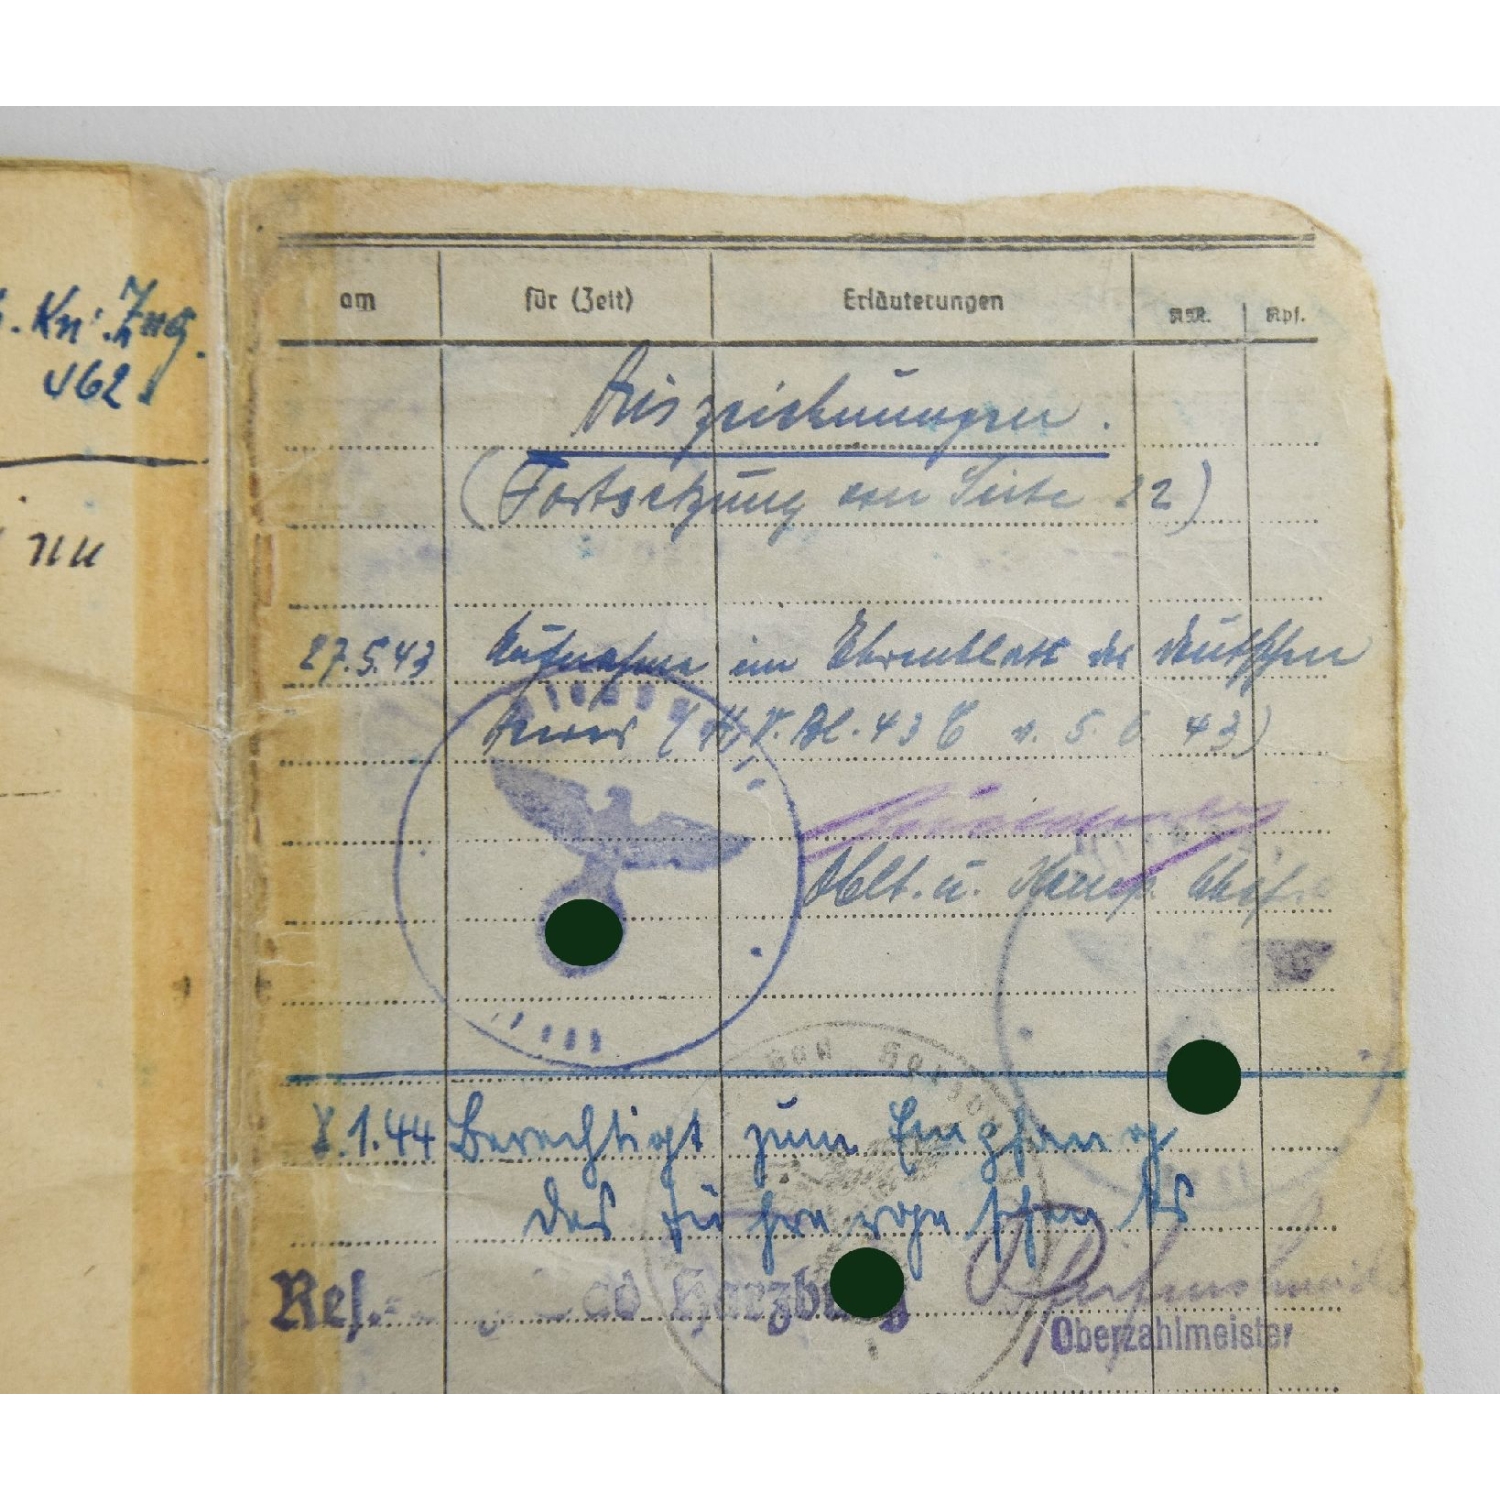 Kn. Zug.
462
nn
am für (Zeit) Erläuterungen RM. Rpf.
Auszeichnungen.
(Fortsetzung von Seite 22)
27.5.43 Aufnahme im Ehrenblatt des deutschen
Heeres (H.V.Bl. 43 v. 5. 6 43)
Oblt. u. Komp. Chef.
Bad Harzb
.1.44 Berechtigt zum Empfang
des Führergeschenks
Res. Bad Harzburg
Oberzahlmeister